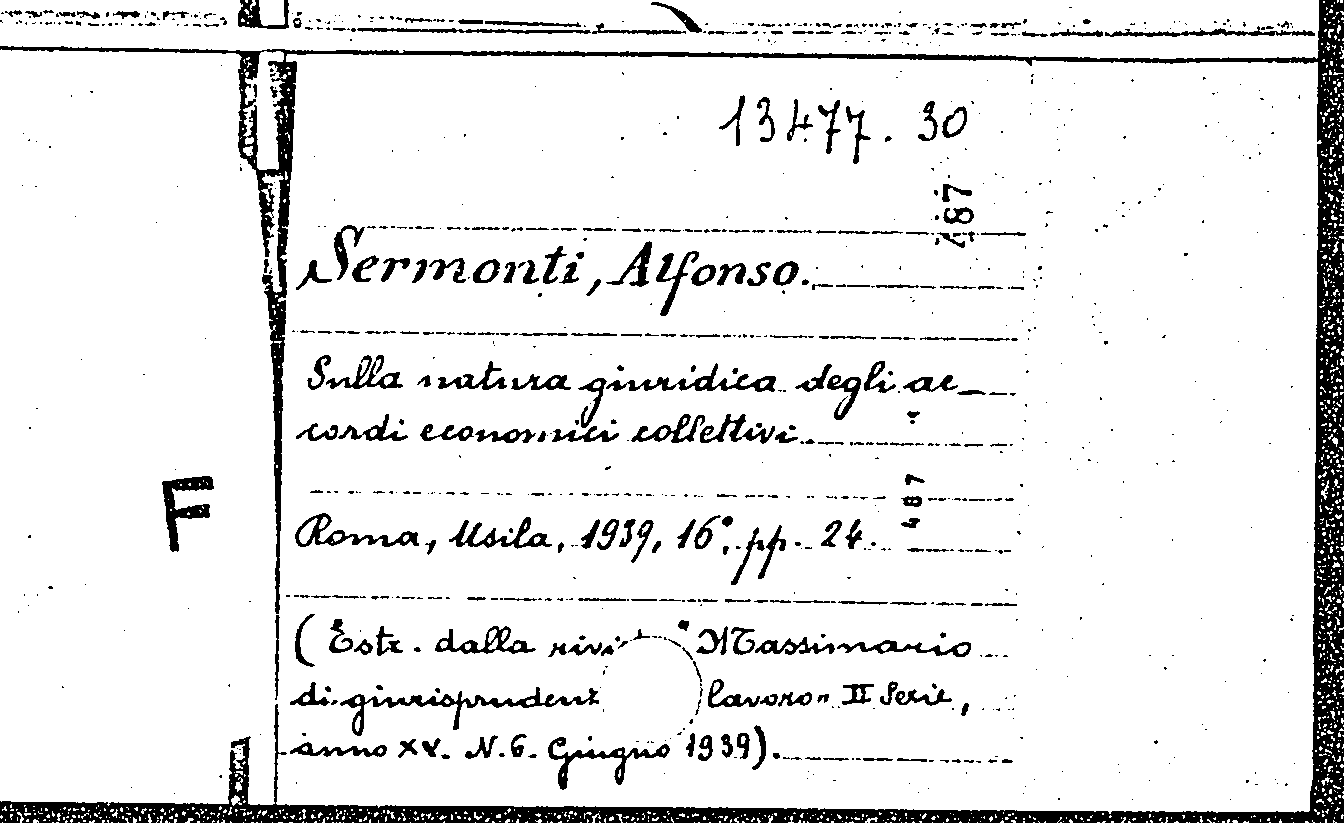 13477. 30
487
Sermonti, Alfonso.
Sulla natura giuridica degli ac_
cordi economici collettivi.
487
F
Roma, Usila, 1939, 16°, pp. 24.
(Estr. dalla "Massimario
di giurisprudenz lavoro" II Serie,
anno XV. N. 6. Giugno 1939).